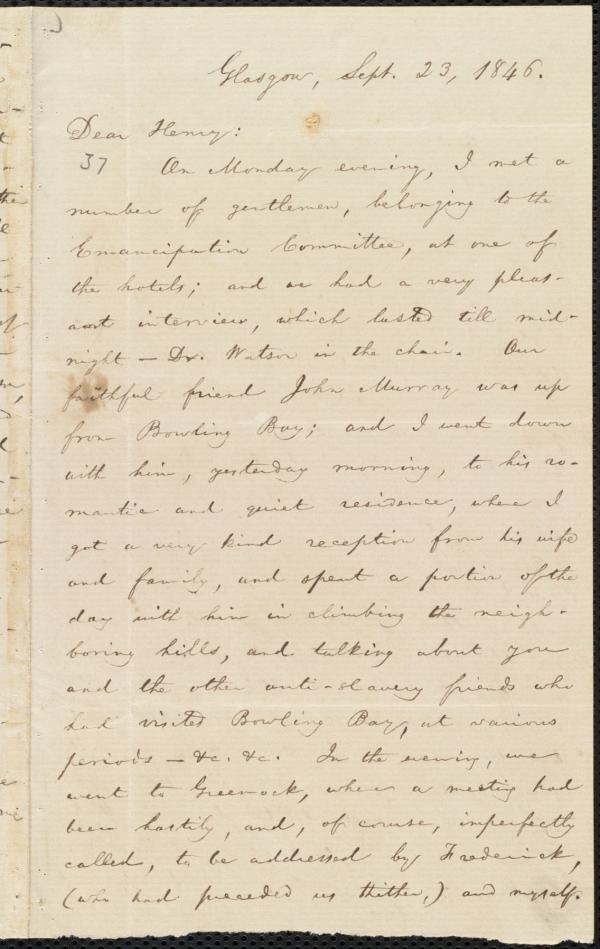 Glasgow, Sept. 23, 1846.
Dear Henry:
37 On Monday evening, I met a
number of gentlemen, belonging to the
Emancipation Committee, at one of
the hotels; and we had a very pleas-
ant interview, which lasted till mid-
night — Dr. Watson in the chair. Our
faithful friend John Murray was up
from Bowling Bay; and I went down
with him, yesterday morning, to his ro-
mantic and quiet residence, where I
got a very kind reception from his wife
and family, and spent a portion of the
day with him in climbing the neigh-
boring hills, and talking about you
and the other anti-slavery friends who
had visited Bowling Bay, at various
periods — &c. &c. In the evening, we
went to Greenock, where a meeting had
been hastily, and, of course, imperfectly
called, to be addressed by Frederick,
(who had preceded us thither,) and myself.